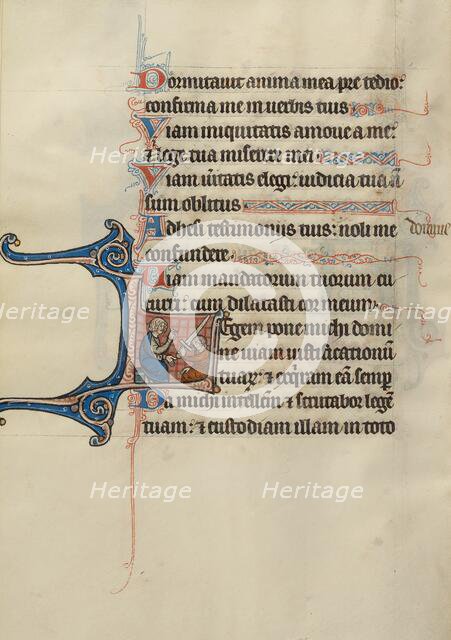 Dormitauit anima mea pre tedio:
confirma me in uerbis tuis
Uiam iniquitatis amoue a me:
& lege tua miserere mei
Uiam ueritatis elegi: iudicia tua nō
sum oblitus
Adhesi testimoniis tuis: noli me
confundere
Uiam mandatorum tuorum cu
curri: cum dilatasti cor meum
Legem pone michi domi
ne uiam iustificationū
tuaꝝ: & exquiram eā semp
Da michi intellcm̄ & scrutabor legē
tuam: & custodiam illam in toto
Heritage
Heritage
Heritage
Heritage
Heritage
Heritage